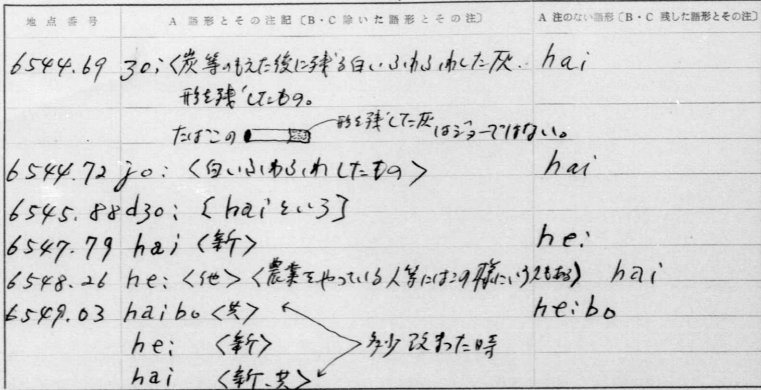 地点番号 A 語形とその注記〔B・C 除いた語形とその注〕 A 注のない語形〔B・C 残した語形とその注〕
6544.69 ʒo: <炭等のもえた後に残る白いふわふわした灰. hai
形を残したもの。
たばこの 形を残した灰 はジョーではない。
6544.72 jo: <白いふわふわしたもの> hai
6545.88 dʒo: [haiという]
6547.79 hai <新> he:
6548.26 he: <他> <農業をやっている人等にはこの様にいう人もある> hai
6549.03 haibo <共> he:bo
he: <新> 多少改まった時
hai <新、共>